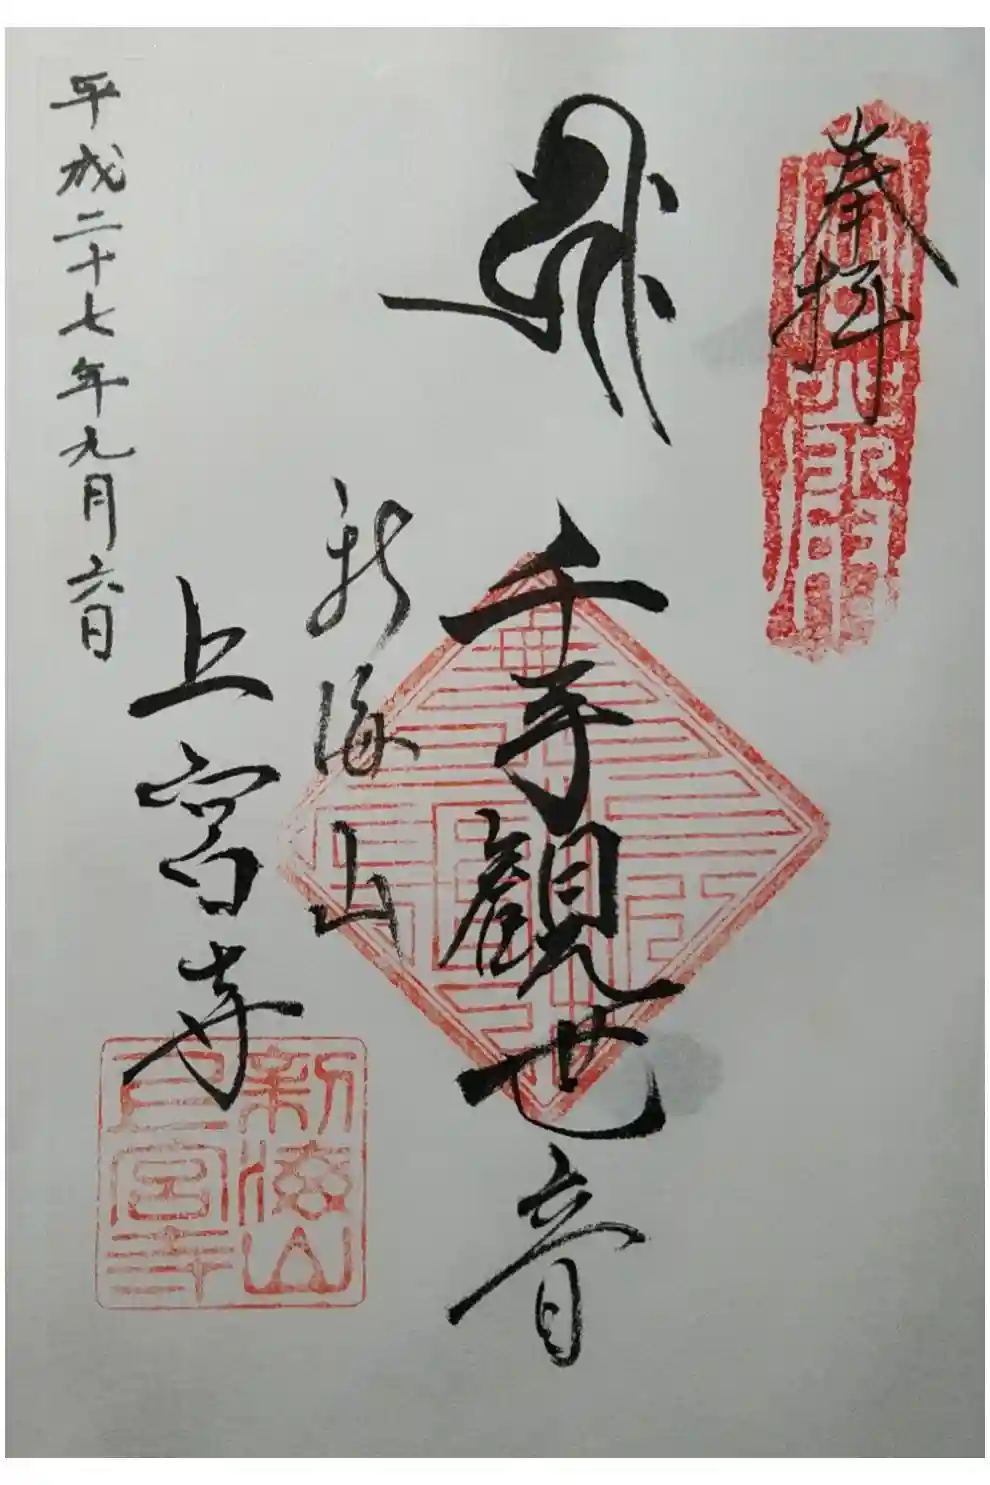 奉拝
千手観世音
新海山
上宮寺
平成二十七年九月六日
新海山
上宮寺